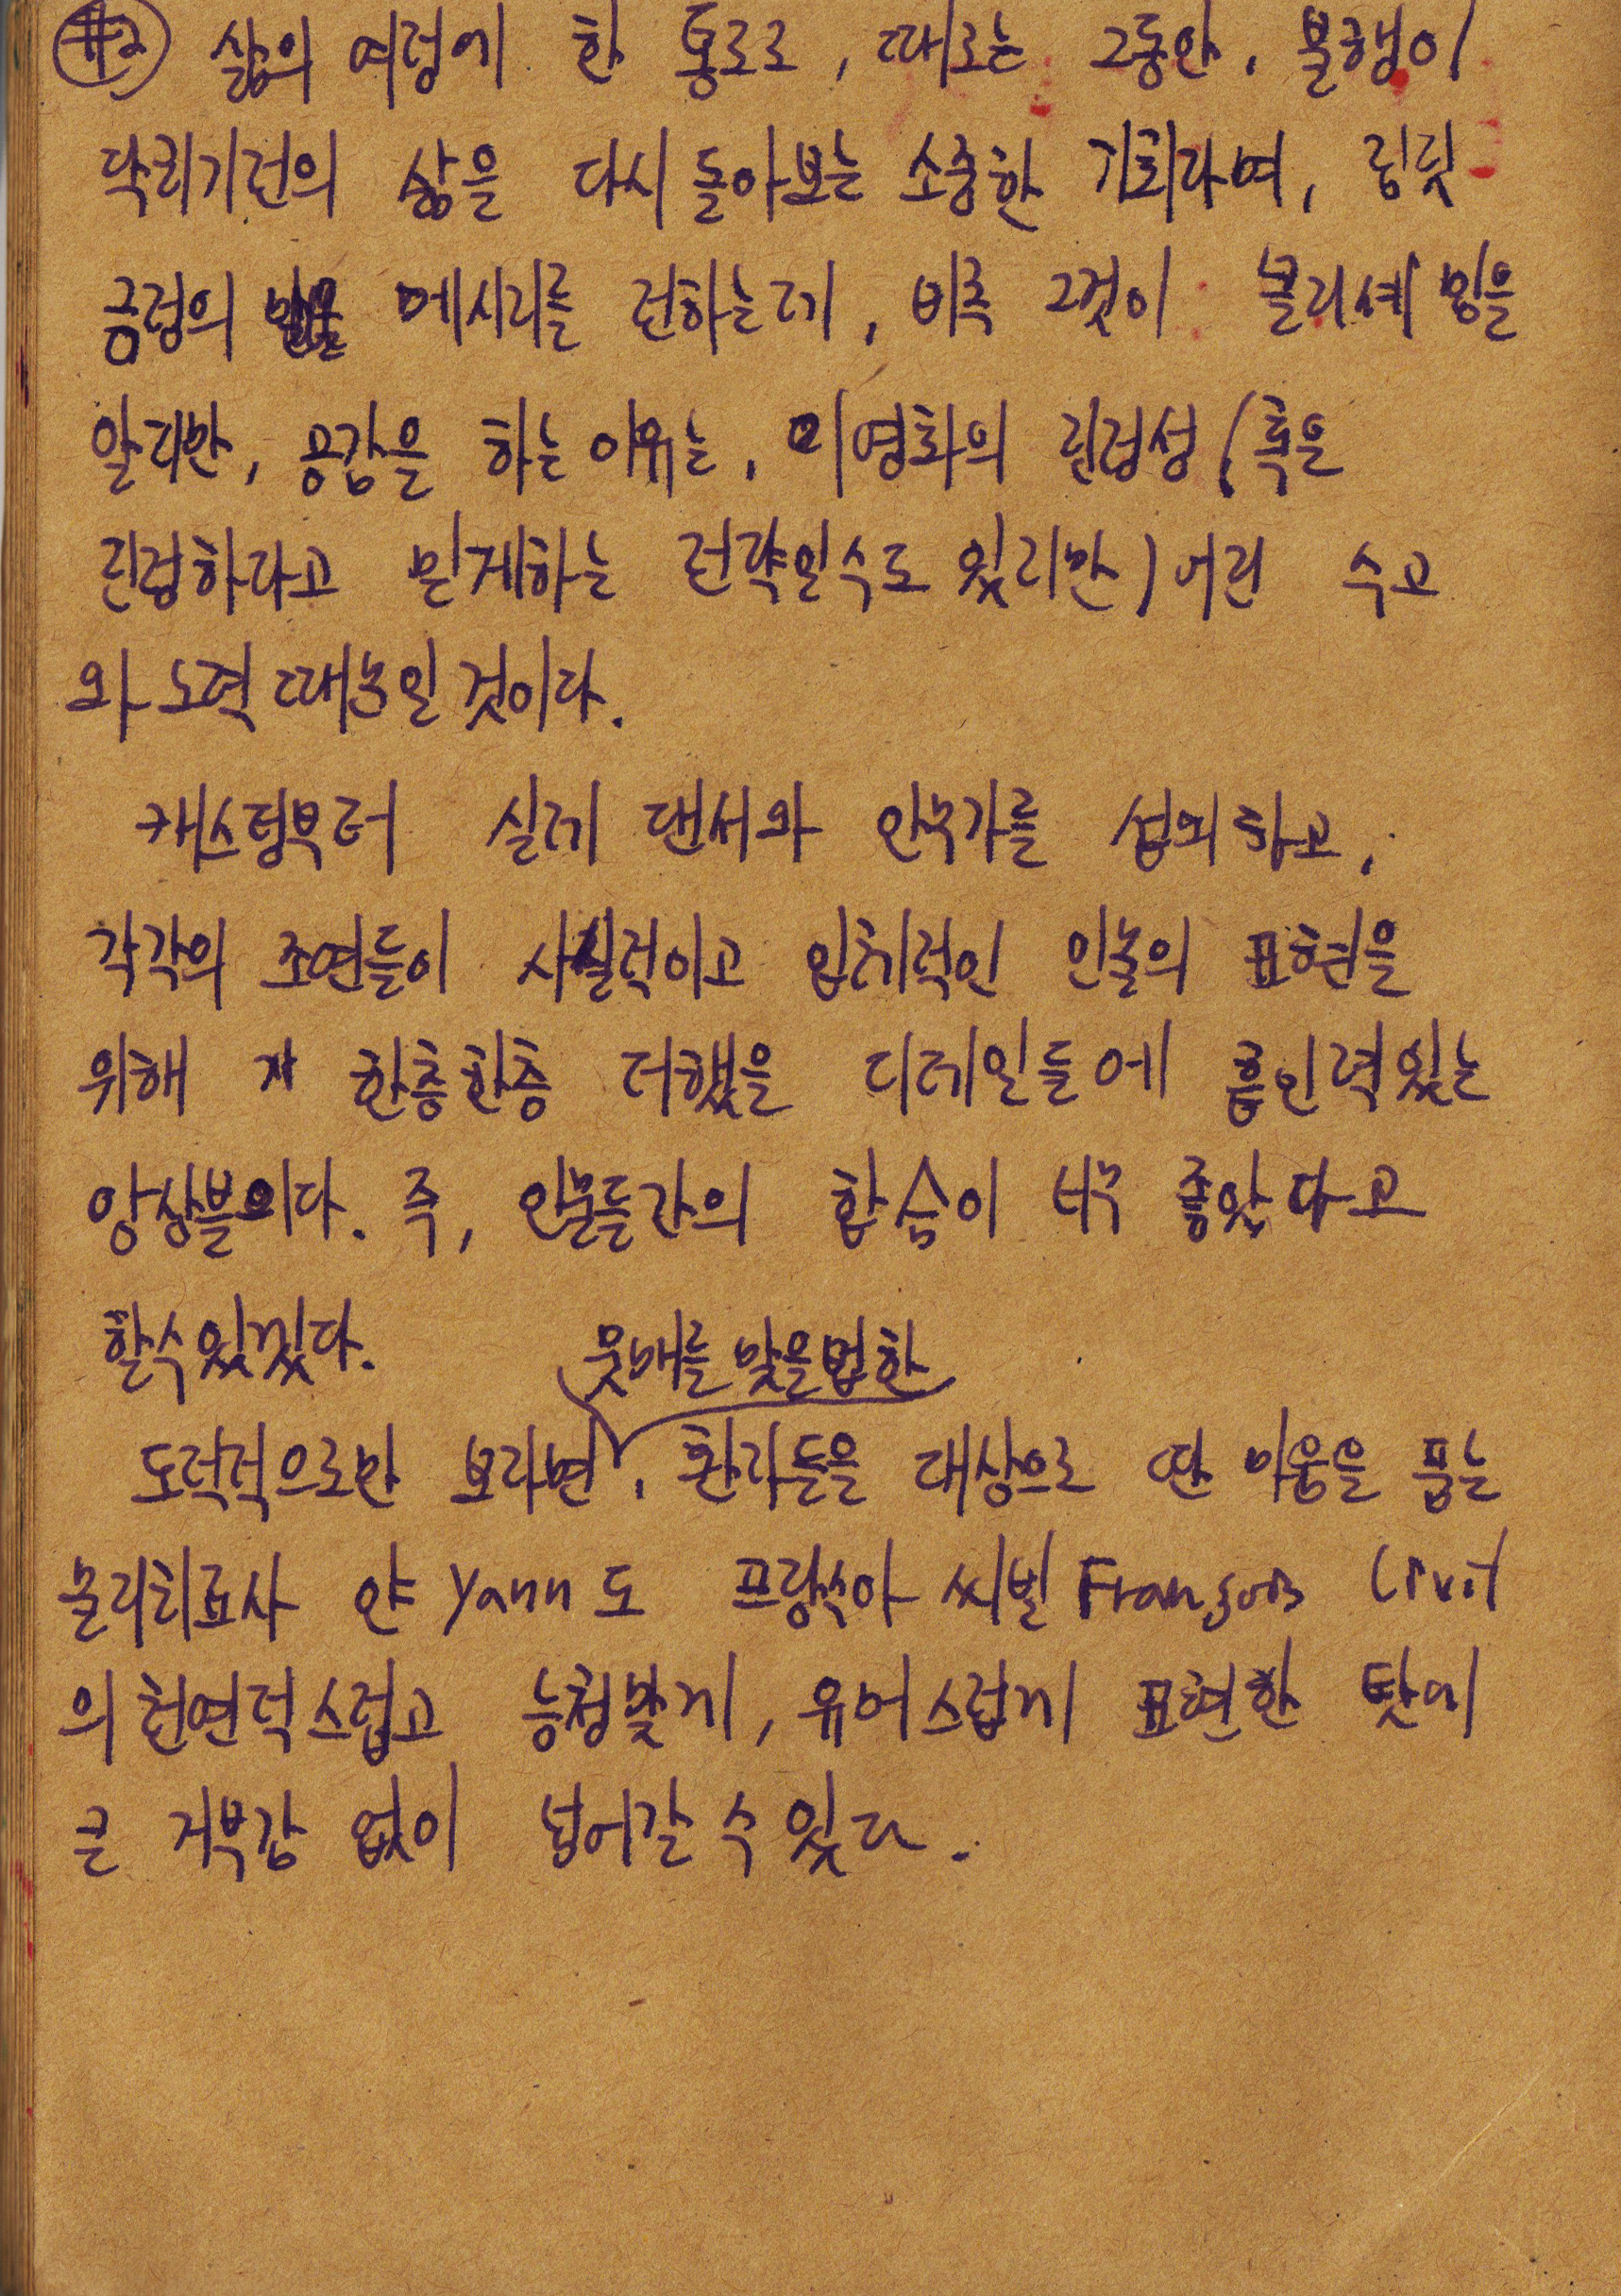 #2 삶의 여정에 한 통로로, 때로는 그동안, 불행이
닥치기전의 삶을 다시 돌아보는 소중한 기회라며, 짐짓
긍정의 메시지를 전하는데, 비록 그것이 클리셰 임을
알지만, 공감을 하는 이유는, 이 영화의 진정성 (혹은
진정하다고 믿게하는 전략일수도 있지만) 어린 수고
와 노력 때문일 것이다.
캐스팅부터 실제 댄서와 안무가를 섭외하고,
각각의 조연들이 사실적이고 입체적인 인물의 표현을
위해 한층한층 더했을 디테일들에 흡인력있는
앙상블이다. 즉, 인물들간의 합슴이 너무 좋았다고
할수있겠다.
뭇매를 맞을법한
도덕적으로만 보자면, 환자들을 대상으로 딴 마음을 품는
물리치료사 얀 Yann도 프랑수아 씨빌 François Civil
의 천연덕스럽고 능청맞게, 유머스럽게 표현한 탓에
큰 거부감 없이 넘어갈 수 있다.